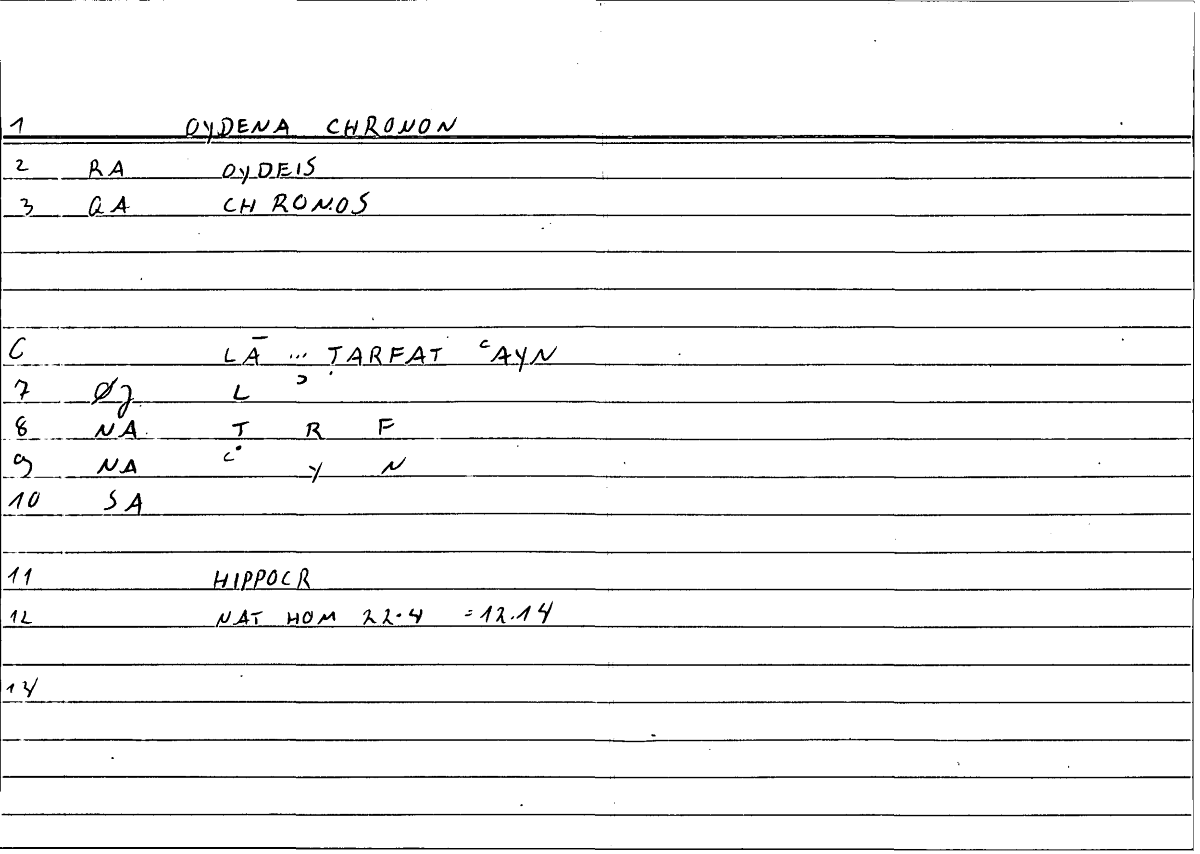 1 OYDENA CHRONON
2 RA OYDEIS
3 QA CHRONOS
C LĀ ... ṬARFAT ʿAYN
7 ØJ L ʾ
8 NA Ṭ R F
9 NA ʿ Y N
10 SA
11 HIPPOCR
12 NAT HOM 22.4 =12.14
14